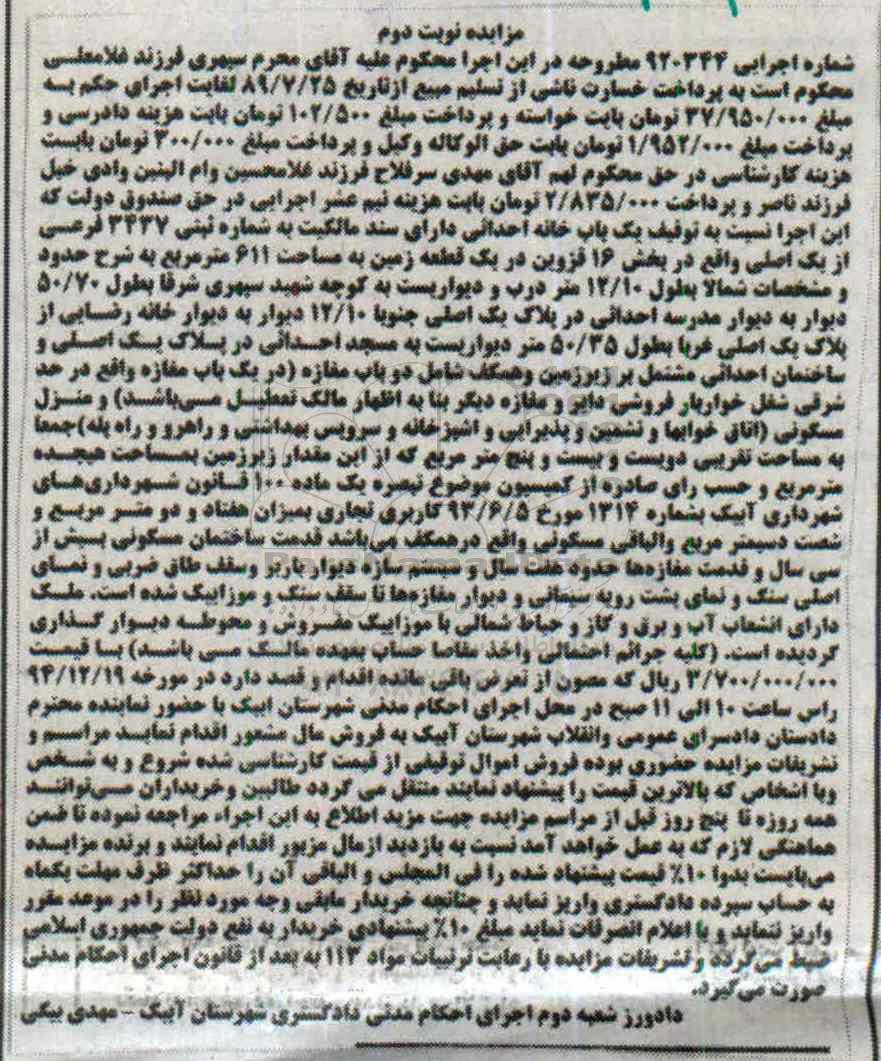 مزایده نوبت دوم
شماره اجرایی ۹۲۰۳۴۴ مطروحه در این اجرا محکوم علیه آقای محرم سپهری فرزند غلامعلی
محکوم است به پرداخت خسارت ناشی از تسلیم مبیع ازتاریخ ۸۹/۷/۲۵ لغایت اجرای حکم به
مبلغ ۳۷/۹۵۰/۰۰۰ تومان بابت خواسته و پرداخت مبلغ ۱۰۲/۵۰۰ تومان بابت هزینه دادرسی و
پرداخت مبلغ ۱/۹۵۲/۰۰۰ تومان بابت حق الوکاله وکیل و پرداخت مبلغ ۳۰۰/۰۰۰ تومان بابست
هزینه کارشناسی در حق محکوم لهم آقای مهدی سرفلاح فرزند غلامحسین وام البنین وادی خیل
فرزند ناصر و پرداخت ۲/۸۳۵/۰۰۰ تومان بابت هزینه نیم عشر اجرایی در حق صندوق دولت که
این اجرا نسبت به توقیف یک باب خانه احداثی دارای سند مالکیت به شماره ثبتی ۳۴۳۷ فرعی
از یک اصلی واقع در بخش ۱۶ قزوین در یک قطعه زمین به مساحت ۶۱۱ مترمربع به شرح حدود
و مشخصات شمالا بطول ۱۲/۱۰ متر درب و دیواریست به کوچه شهید سپهری شرقا بطول ۵۰/۷۰
دیوار به دیوار مدرسه احداثی در پلاک یک اصلی جنوبا ۱۲/۱۰ دیوار به دیوار خانه رضایی از
پلاک یک اصلی غربا بطول ۵۰/۳۵ متر دیواریست به مسجد احداثی در پلاک یک اصلی و
ساختمان احداثی مشتمل بر زیرزمین وهمکف شامل دو باب مغازه (در یک باب مغازه واقع در حد
شرقی شغل خواربار فروشی دایر و مغازه دیگر بنا به اظهار مالک تعطیل می‌باشد) و منزل
مسکونی (اتاق خوابها و نشمین و پذیرایی و اشپزخانه و سرویس بهداشتی و راهرو و راه پله)جمعا
به مساحت تقریبی دویست و بیست و پنج متر مربع که از این مقدار زیرزمین بمساحت هیجده
مترمربع و حسب رای صادره از کمیسیون موضوع تبصره یک ماده ۱۰۰ قانون شهرداری‌های
شهرداری آبیک بشماره ۱۳۱۴ مورخ ۹۳/۶/۵ کاربری تجاری بمیزان هفتاد و دو متر مربع و
شصت دسیمتر مربع والباقی مسکونی واقع درهمکف می‌باشد قدمت ساختمان مسکونی بیش از
سی سال و قدمت مغازه‌ها حدود هفت سال و سیستم سازه دیوار باربر وسقف طاق ضربی و نمای
اصلی سنگ و نمای پشت رویه سیمانی و دیوار مغازه‌ها تا سقف سنگ و موزاییک شده است. ملک
دارای انشعاب آب و برق و گاز و حیاط شمالی با موزاییک مفروش و محوطه دیوار گذاری
گردیده است. (کلیه جرائم احتمالی واخذ مفاصا حساب بعهده مالک می باشد) با قیمت
۳/۷۰۰/۰۰۰/۰۰۰ ریال که مصون از تعرض باقی مانده اقدام و قصد دارد در مورخه ۹۴/۱۲/۱۹
راس ساعت ۱۰ الی ۱۱ صبح در محل اجرای احکام مدنی شهرستان ابیک با حضور نماینده محترم
دادستان دادسرای عمومی وانقلاب شهرستان آبیک به فروش مال مشعور اقدام نماید مراسم و
تشریفات مزایده حضوری بوده فروش اموال توقیفی از قیمت کارشناسی شده شروع و به شخص
ویا اشخاص که بالاترین قیمت را پیشنهاد نمایند منتقل می گردد طالبین وخریداران می‌توانند
همه روزه تا پنج روز قبل از مراسم مزایده جهت مزید اطلاع به این اجراء مراجعه نموده تا ضمن
هماهنگی لازم که به عمل خواهد آمد نسبت به بازدید ازمال مزبور اقدام نمایند و برنده مزایده
می‌بایست بدوا ۱۰٪ قیمت پیشنهاد شده را فی المجلس و الباقی آن را حداکثر ظرف مهلت یکماه
به حساب سپرده دادگستری واریز نماید و چنانچه خریدار مابقی وجه مورد نظر را در موعد مقرر
واریز ننماید و یا اعلام انصرفات نماید مبلغ ۱۰٪ پیشنهادی خریدار به نفع دولت جمهوری اسلامی
ضبط می‌گردد و تشریفات مزایده با رعایت ترتیبات مواد ۱۱۳ به بعد از قانون اجرای احکام مدنی
صورت می‌گیرد.
دادورز شعبه دوم اجرای احکام مدنی دادگستری شهرستان آبیک – مهدی بیکی